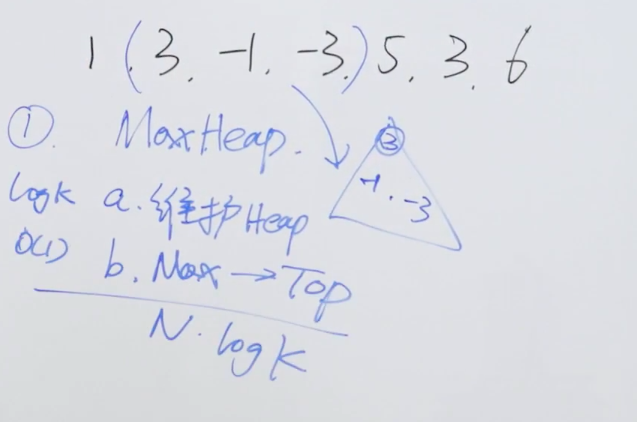 1 (3, -1, -3,) 5, 3, 6
① MaxHeap.
3
-1, -3
logK a. 维护Heap
O(1) b. Max → Top
N·logK